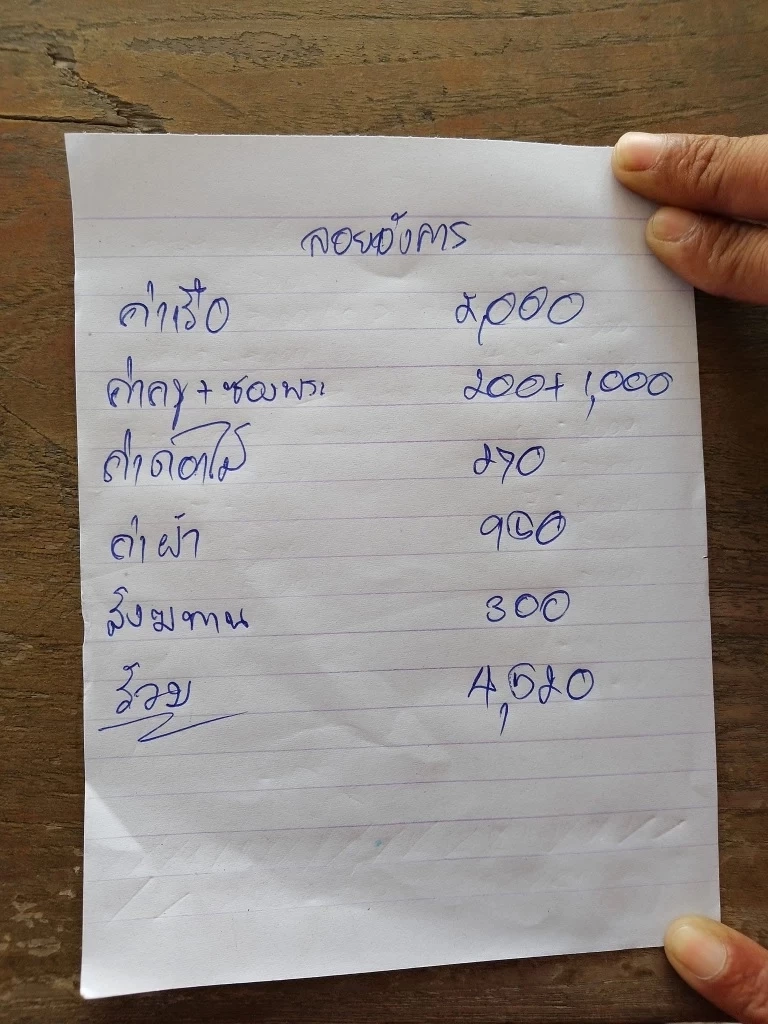 ลอยอังคาร
ค่าเรือ 2,000
ค่าครู + ซองพระ 200+1,000
ค่าดอกไม้ 270
ค่าผ้า 750
สังฆทาน 300
รวม 4,520